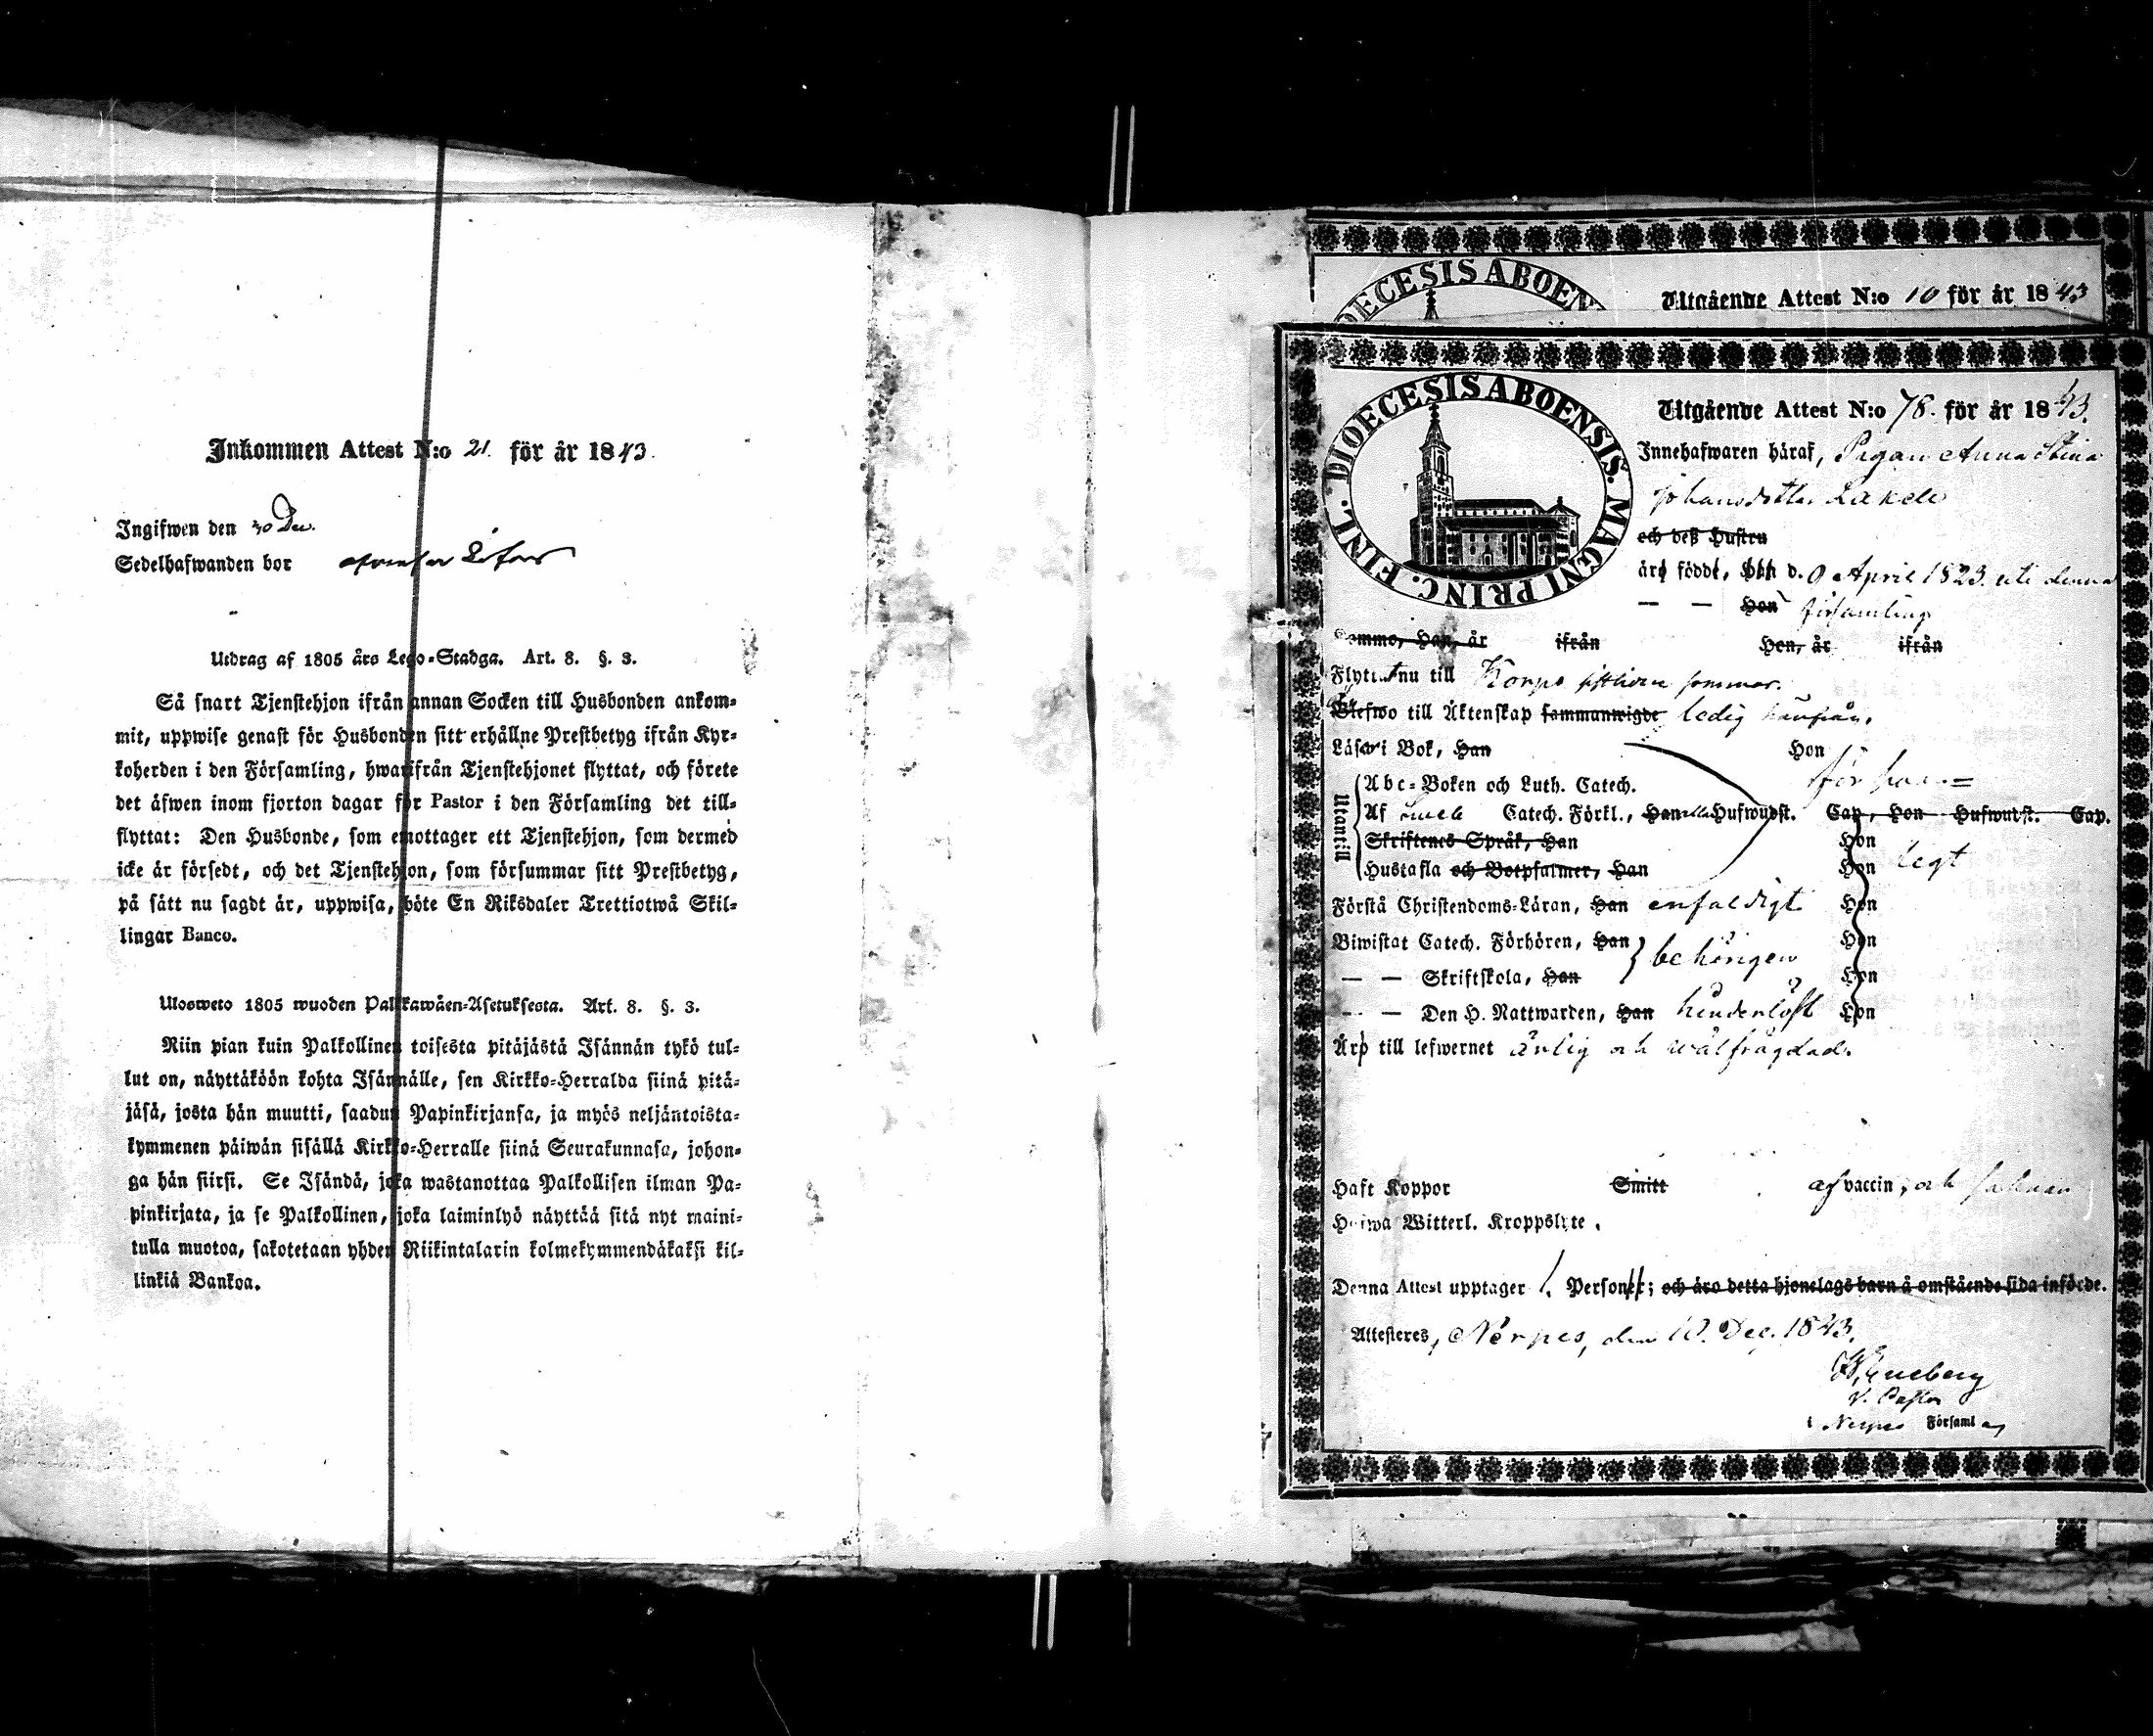 Inkommen Attest N:o 21. för år 1843.
Ingifwen den 30 Dec.
Sedelhafwanden bor
Utdrag af 1805 års Lego-Stadga. Art. 8. §. 3.
Så snart Tjenstehjon ifrån annan Socken till Husbonden ankom-
mit, uppwise genast för Husbonden sitt erhållne Prestbetyg ifrån Kyr-
koherden i den Församling, hwarifrån Tjenstehjonet flyttat, och förete
det äfwen inom fjorton dagar för Pastor i den Församling det till-
flyttat: Den Husbonde, som emottager ett Tjenstehjon, som dermed
icke är försedt, och det Tjenstehjon, som försummar sitt Prestbetyg,
på sätt nu sagdt är, uppwisa, böte En Riksdaler Trettiotwå Skil-
lingar Banco.
Ulosweto 1805 wuoden Palkkawäen-Asetuksesta. Art. 8. §. 3.
Niin pian kuin Palkollinen toisesta pitäjästä Isännän tykö tul-
lut on, näyttäköön kohta Isännälle, sen Kirkko-Herralda siinä pitä-
jäsä, josta hän muutti, saadun Papinkirjansa, ja myös neljäntoista-
kymmenen päiwän sisällä Kirkko-Herralle siinä Seurakunnasa, johon-
ga hän siirsi. Se Isändä, joka wastanottaa Palkollisen ilman Pa-
pinkirjata, ja se Palkollinen, joka laiminlyö näyttää sitä nyt maini-
tulla muotoa, sakotetaan yhden Riikintalarin kolmekymmendäkaksi kil-
linkiä Bankoa.
DIOECESIS ABOEN
Utgående Attest N:o 10 för år 1843
DIOECESIS ABOENSIS. MAGNI PRINC. FINL.
Utgående Attest N:o 78. för år 1843.
Innehafwaren häraf, Pigan Anna Stina
Johansdotter
och deß Hustru
äro födde, Han d. 9 April 1823. uti denna
— — Hon församling
Kommo, Han, år ifrån Hon, år ifrån
Flyttat nu till Korpo sistliden sommar.
Blefwo till Äktenskap sammanwigde ledig härifrån.
Läser i Bok, Han Hon
Utantill
Abc-Boken och Luth. Catech.
Af Catech. Förkl., Han Hufwudst. Cap, Hon Hufwudst. Cap.
Skriftenes Språk, Han Hon
Hustafla och Botpsalmer, Han Hon
Förstå Christendoms-Läran, Han enfaldigt Hon
Biwistat Catech. Förhören, Han behörigen Hon
— — Skriftskola, Han Hon
— — Den H. Nattwarden, Han hinderlöst Hon
Äro till lefwernet ärlig och wälfrägdad.
Haft Koppor Smitt af vaccin, och
Hafwa Witterl. Kroppslyte.
Denna Attest upptager 1. Personer; och äro detta hjonelags barn å omstående sida införde.
Attesteres, Nerpes, den 10. Dec. 1843.
V. Pastor
i Nerpes Församl